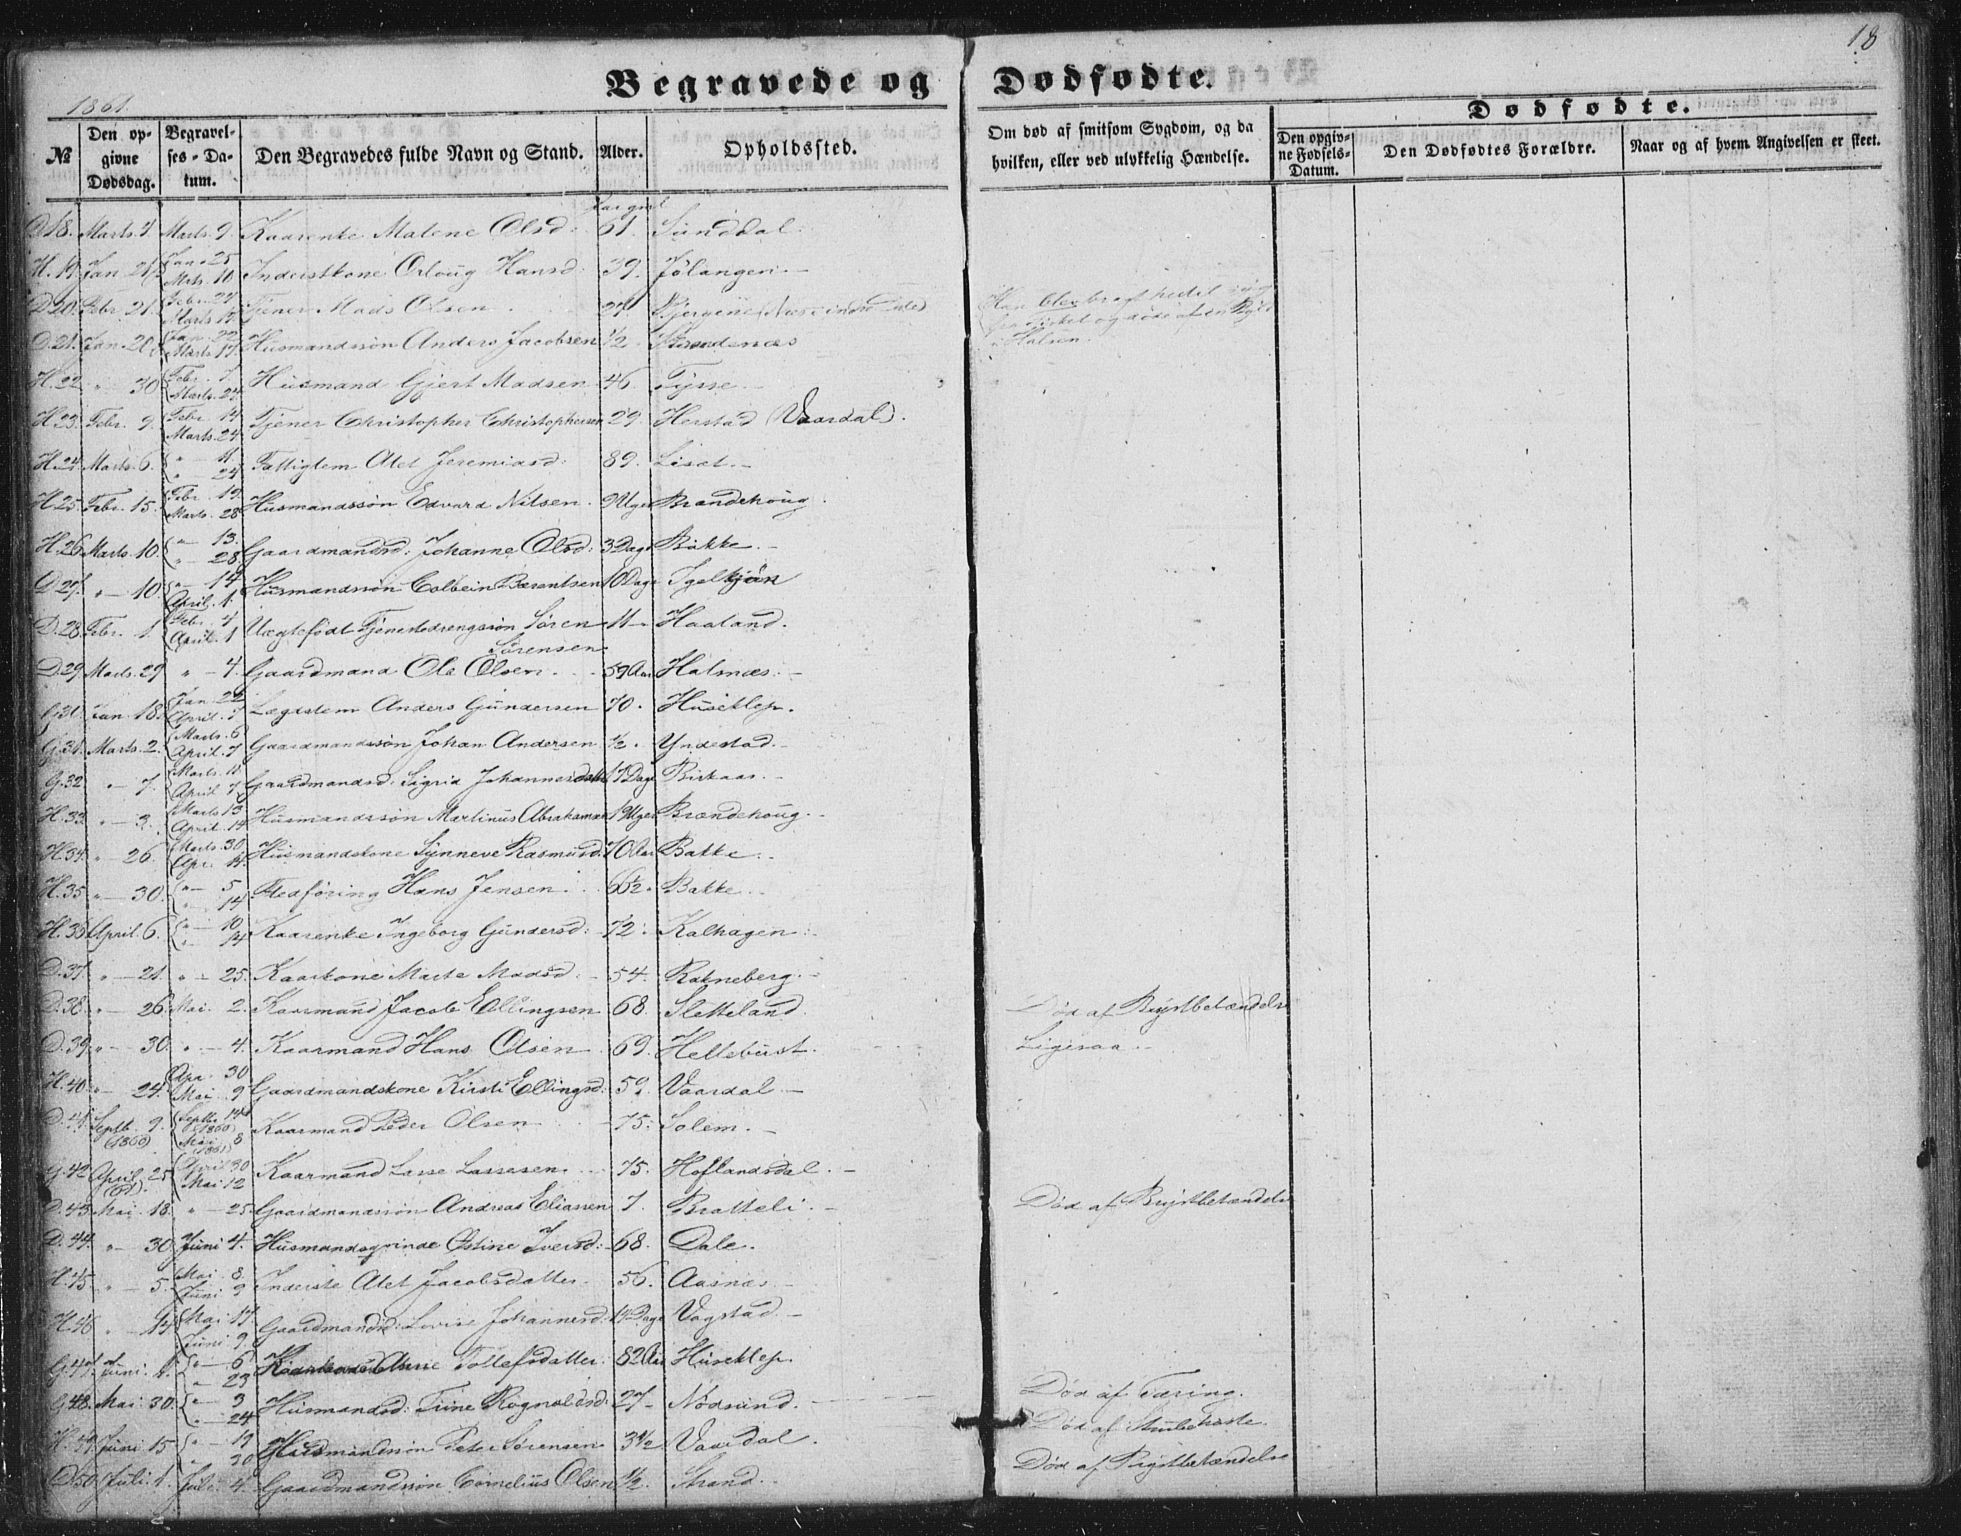 18
Begravede og Dødfødte.
1861.
Dødfødte.
№
Den opgivne Dødsdag.
Begravelses-Datum.
Den Begravedes fulde Navn og Stand.
Alder.
Opholdssted.
Om død af smitsom Sygdom, og da hvilken, eller ved ulykkelig Hændelse.
Den opgivne Fødsels-Datum.
Den Dødfødtes Forældre.
Naar og af hvem Angivelsen er skeet.
D.18. Marts 7. Marts 9. Kaarenke Malene Olsd: 61. Sunddal.
H.19. Jan Jan. 25 Mrts. 10 Inderstkone Hansd: 39. Jølangen.
D.20. Febr. 21. Febr. 27 Marts Tjener Mads Olsen. Han blev
D.21. Jan. 20. Jan. 22 Marts 17 Husmandssøn Anders Jacobsen ½ Strandenæs Halsen.
H.22 " 30 Febr. 7 Marts. 24 Husmand Gjert Madsen 46. Tysse.
H.23. Febr. 9. Febr. 14 Marts. 24 Tjener Christopher Christophersen 29. Herstad (Vaardal).
H.24. Marts. 6. " 11. " 24 Fattiglem Alet Jeremiasd: 89.
H.25. Febr. 15. Febr. 19. Marts. 28 Husmandssøn Edvard Nilsen. 9 Uger Brandehoug.
H.26. Marts. 10. " 13. " 28 Gaardmandsd: Johanne Olsd: 3 Dage Bakke.
D.27. " 10. " 14 April. 1. Husmandssøn Colbein Berentsen 10 Dage Igelkjøn
D.28. Febr. 1 Febr. 4 April. 1 Uægtefødt Tjenestedrengssøn Søren Sørensen 11 Haaland.
D.29. Marts. 29 " 4. Gaardmand Ole Olsen. 59 Aar Halsnæs.
Jan. 18. Jan. 22 April. 7 Lægdslem Anders Gundersen 70. Huseklep.
G.31. Marts. 2. Marts. 6 April. 7 Gaardmandssøn Johan Andersen ½. Yndestad.
G.32 " 7. Marts. 11. April 7. Gaardmandsd: Sigrid Johannesdatter 17 Dage Birkaas.
H.33. " 3. Marts 13 April. 14 Husmandssøn Martinus Abrahamsen Uger Brandehoug.
H.34. " 26. Marts. 30. Apr. 14. Husmandskone Synneve Rasmusd. 70 Aar Bakke.
H.35 " 30. " 5 " 14 Fledføring Hans Jensen 66½. Bakke.
April. 6. " 10 " 14 Kaarenke Ingeborg Gundersd: 72. Kalhagen.
D.37. " 21. " 25. Kaarkone Marte Madsd. 54. Rakneberg.
D.38. " 26. Mai. 2. Kaarmand Jacob Ellingsen 68. Sletteland. Død af Brystbetændelse
D.39. " 30. " 4. Kaarmand Hans Olsen 69. Hellebust. Ligesaa.
H.40. " 24. Apr. 30 Mai. 9 Gaardmandskone Kirsti Ellingsd: 59. Vaardal.
D.41. Septb. 9. (1860) Septb. 14 (1860) Mai. 8 (1861) Kaarmand Peder Olsen 75. Solem.
G.42 April. 25 (61). April 30 Mai 12 Kaarmand Lasse Lassesen. 75. Hoflandsdal.
D.43. Mai. 18. " 25. Gaardmandssøn Andreas Eliassen 7. Bratteli. Død af Brystbetændelse
D.44. " 30. Juni 4. Husmandsqvinde Østine Iversd: 68. Dale.
H.45 " 5. Mai. 8 Juni. 9 Inderste Alet Jacobsdatter. 56. Aasnæs
H.46 " 14 Mai. 17. Juni. 9 Gaardmandsd: Lovise Johannesd: 14 Dage Vagstad
G.47. Juni. 1. " 6. " 23 Kaarkone Anne Tollefsdatter. 82 Aar Huseklep.
G.48. Mai. 30. " 3 " 24 Husmandsd: Trine Rognaldsd: 27 Nødsund. Død af Tæring.
H.49. Juni 15 " 19 " 30 Husmandssøn Peter Sørensen 3½ Vaardal. Død af Strubehoste
D.50. Juli. 1. Juli. 4. Gaardmandssøn Cornelius Olsen ½. Strand. Død af Brystbetændelse